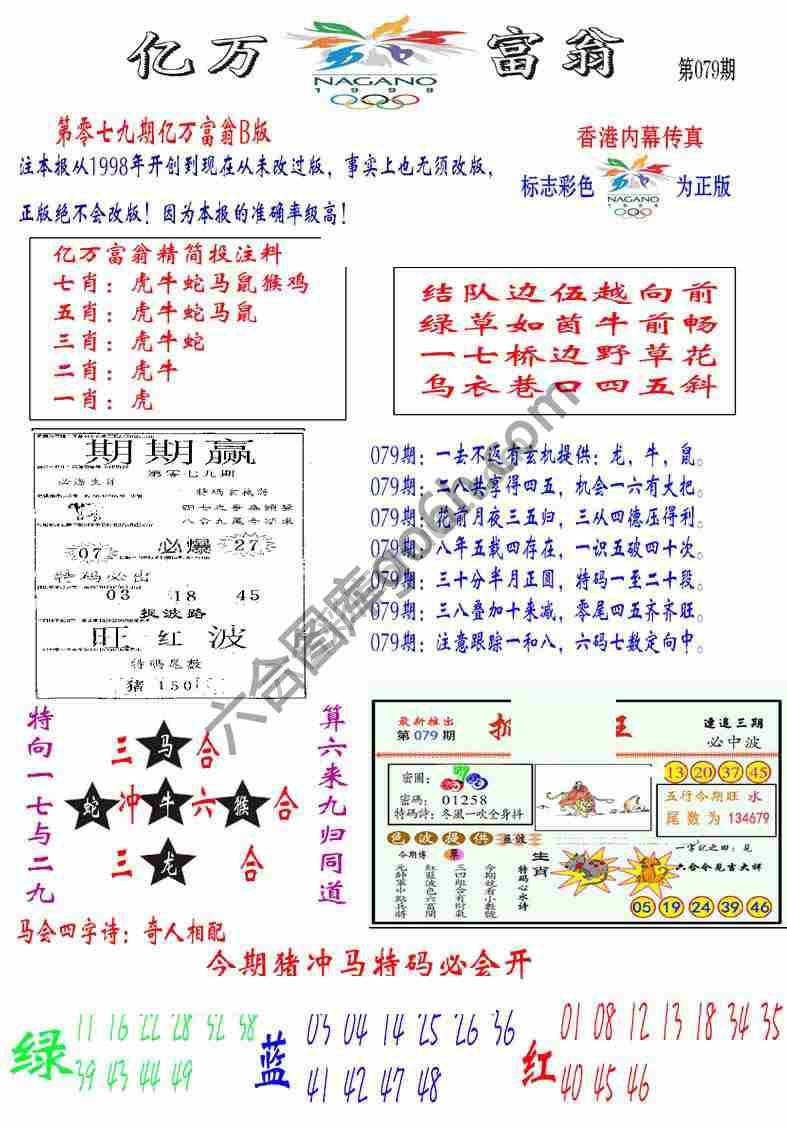 亿万
NAGANO
1998
富翁
第079期
第零七九期亿万富翁B版
注本报从1998年开创到现在从未改过版，事实上也无须改版，
正版绝不会改版！因为本报的准确率级高！
香港内幕传真
标志彩色
NAGANO
1998
为正版
亿万富翁精简投注料
七肖：虎牛蛇马鼠猴鸡
五肖：虎牛蛇马鼠
三肖：虎牛蛇
二肖：虎牛
一肖：虎
结队边伍越向前
绿草如茵牛前畅
一七桥边野草花
乌衣巷口四五斜
期期赢
第零七九期
必选生肖
特码玄机诗
07
必爆
27
特码必出
03 18 45
捉波路
旺红波
特码尾数
猪150
079期：一去不返有玄机提供：龙，牛，鼠。
079期：二八共享得四五，机会一六有大把。
079期：花前月夜三五归，三从四德压得利。
079期：八年五载四存在，一识五破四十次。
079期：三十分半月正圆，特码一至二十段。
079期：三八叠加十来减，零尾四五齐齐旺。
079期：注意跟踪一和八，六码七数定向中。
特向一七与二九
三马合
蛇冲牛六猴合
三龙合
算六来九归同道
最新推出
第079期
王
连追三期
必中波
密图：
密碼：01258
特码詩：冬風一吹全身抖
13 20 37 45
五行今期旺 水
尾数为 134679
色波提供
今期博
元帥軍中點兵將
紅藍波色六富閒
三四組合有財氣
今期就看小數號
特码心水诗
生肖
一字記之曰：見
六合今見吉大祥
05 19 24 39 46
马会四字诗：奇人相配
今期猪冲马特码必会开
绿
11 16 22 28 32 38
39 43 44 49
蓝
03 04 14 25 26 36
41 42 47 48
红
01 08 12 13 18 34 35
40 45 46
六合图库go6h.com